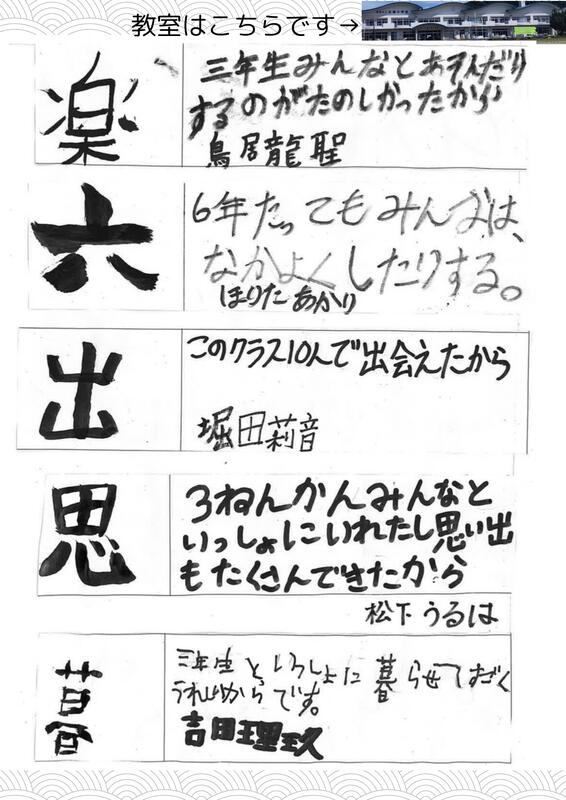 教室はこちらです→
楽
三年生みんなとあそんだり
するのがたのしかったから
鳥居龍聖
六
6年たってもみんなは、
なかよくしたりする。
ほりた あかり
出
このクラス10人で出会えたから
堀田莉音
思
3ねんかんみんなと
いっしょにいれたし思い出
もたくさんできたから
松下うるは
暮
三年生といっしょに暮らせて
うれしからです。
吉田理玖